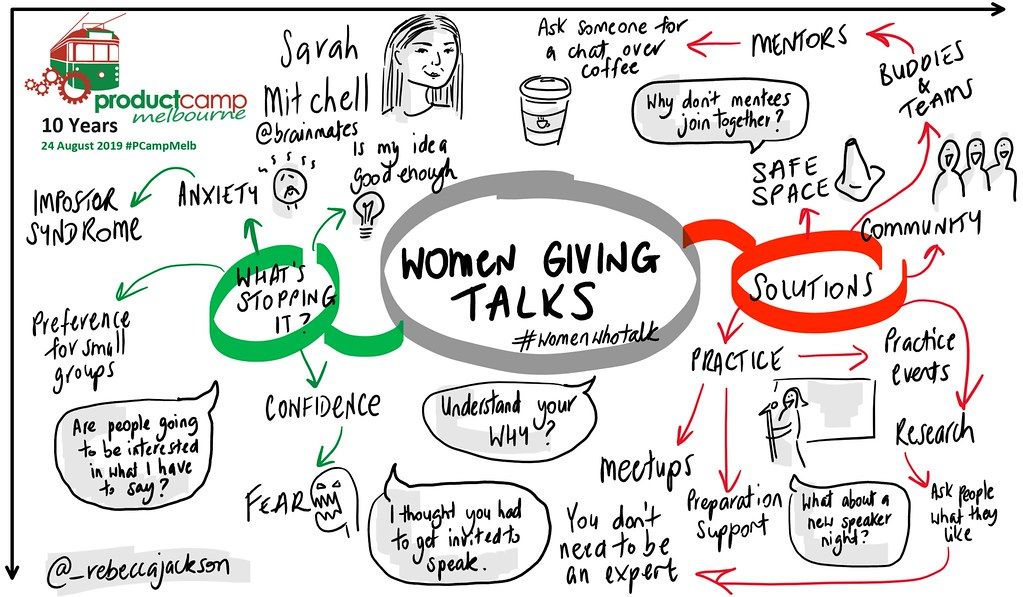 productcamp
melbourne
10 Years
24 August 2019 #PCampMelb
Sarah
Mitchell
@brainmates
Is my idea
good enough
ANXIETY
IMPOSTOR
SYNDROME
WHAT'S
STOPPING
IT?
Preference
for small
groups
Are people going
to be interested
in what I have
to say?
CONFIDENCE
FEAR
@_rebeccajackson
WOMEN GIVING
TALKS
#womenwhotalk
Understand your
WHY?
I thought you had
to get invited to
speak.
Ask someone for
a chat over
coffee
MENTORS
BUDDIES
&
TEAMS
Why don't mentees
join together?
SAFE
SPACE
COMMUNITY
SOLUTIONS
PRACTICE
Practice
events
Research
Meetups
Preparation
Support
What about a
new speaker
night?
Ask people
what they
like
You don't
need to be
an expert